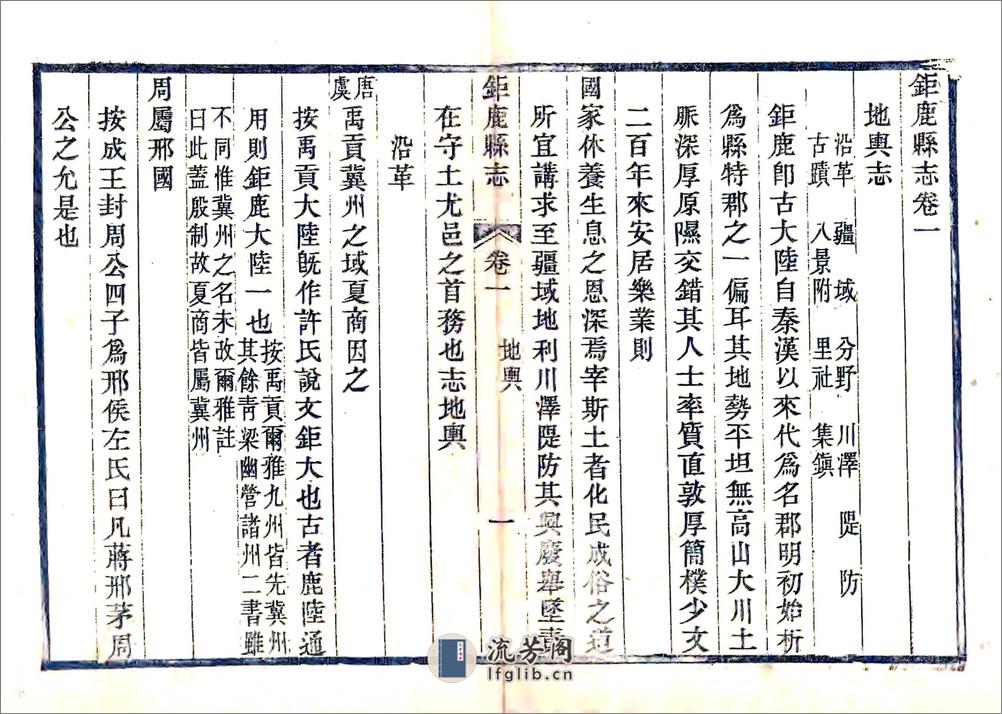 鉅鹿縣志卷一
地輿志
沿革 疆域 分野 川澤 隄防
古蹟 八景附 里社 集鎮
鉅鹿卽古大陸自秦漢以來代爲名郡明初始析
爲縣特郡之一偏耳其地勢平坦無高山大川土
脈深厚原隰交錯其人士率質直敦厚簡樸少文
二百年來安居樂業則
國家休養生息之恩深焉宰斯土者化民成俗之道
所宜講求至疆域地利川澤隄防其興廢舉墜責
鉅鹿縣志 卷一 地輿 一
在守土尤邑之首務也志地輿
沿革
唐虞 禹貢冀州之域夏商因之
按禹貢大陸旣作許氏說文鉅大也古者鹿陸通
用則鉅鹿大陸一也 按禹貢爾雅九州皆先冀州
其餘靑梁幽營諸州二書雖
不同惟冀州之名未故爾雅註
曰此蓋殷制故夏商皆屬冀州
周屬邢國
按成王封周公四子爲邢侯左氏曰凡蔣邢茅周
公之允是也
流芳閣
lfglib.cn